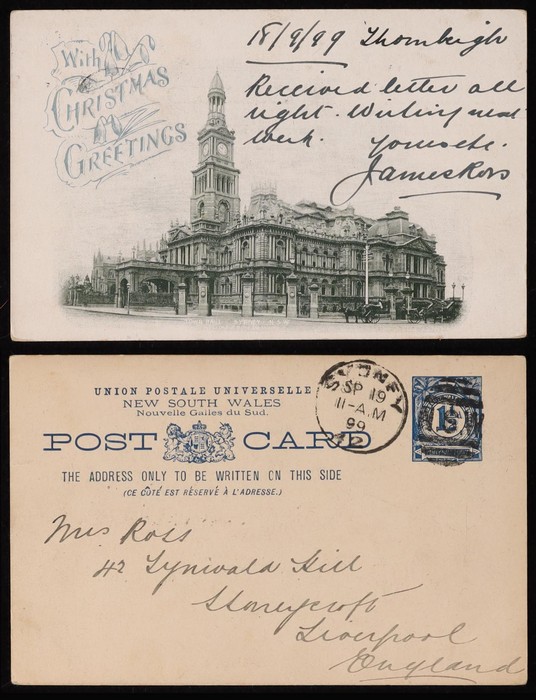 With
CHRISTMAS
GREETINGS
18/9/99 Thornleigh
Received letter all
right. Writing next
week.
Yours etc.
James Ross
UNION POSTALE UNIVERSELLE
NEW SOUTH WALES
Nouvelle Galles du Sud.
POST CARD
THE ADDRESS ONLY TO BE WRITTEN ON THIS SIDE
(CE CÔTÉ EST RÉSERVÉ À L'ADRESSE.)
SYDNEY
SP 19
11-A.M
99
Mrs Ross
42 Lynwald Hill
Stoneycroft
Liverpool
England